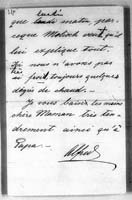 que lundi matin par-
ceque Molioch veut qu'on
lui explique tout.
nous n'avons pas
si froid toujours quelques
degrés de chaud.
Je vous baise les mains
chère Maman très ten-
drement ainsi qu'à
Papa.
Alfred